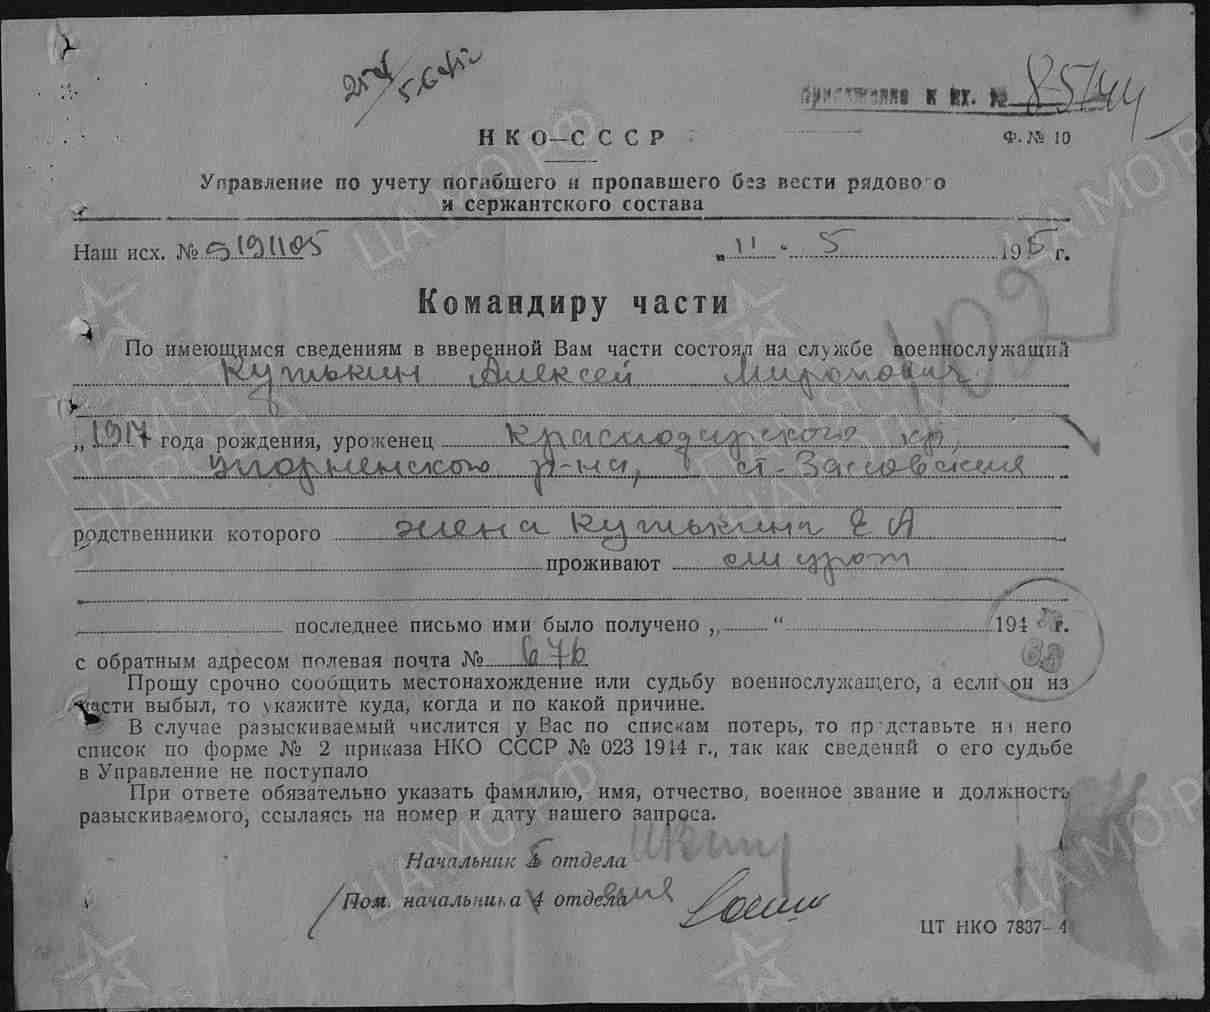 Приложение к вх. № 85144
НКО—СССР
Ф. № 10
Управление по учету погибшего и пропавшего без вести рядового
и сержантского состава
Наш исх. № 919105 „11" 5 1945 г.
Командиру части
По имеющимся сведениям в вверенной Вам части состоял на службе военнослужащий
Кутькин Алексей Миронович
„1917 года рождения, уроженец Краснодарского кр.
Упорненского р-на, ст. Зассовская
родственники которого жена Кутькина Е А
проживают
последнее письмо ими было получено „ “ 194 г.
с обратным адресом полевая почта № 676
Прошу срочно сообщить местонахождение или судьбу военнослужащего, а если он из
части выбыл, то укажите куда, когда и по какой причине.
В случае разыскиваемый числится у Вас по спискам потерь, то представьте на него
список по форме № 2 приказа НКО СССР № 023 1944 г., так как сведений о его судьбе
в Управление не поступало
При ответе обязательно указать фамилию, имя, отчество, военное звание и должность
разыскиваемого, ссылаясь на номер и дату нашего запроса.
Начальник 5 отдела
Пом. начальника 4 отдела
ЦТ НКО 7837–4